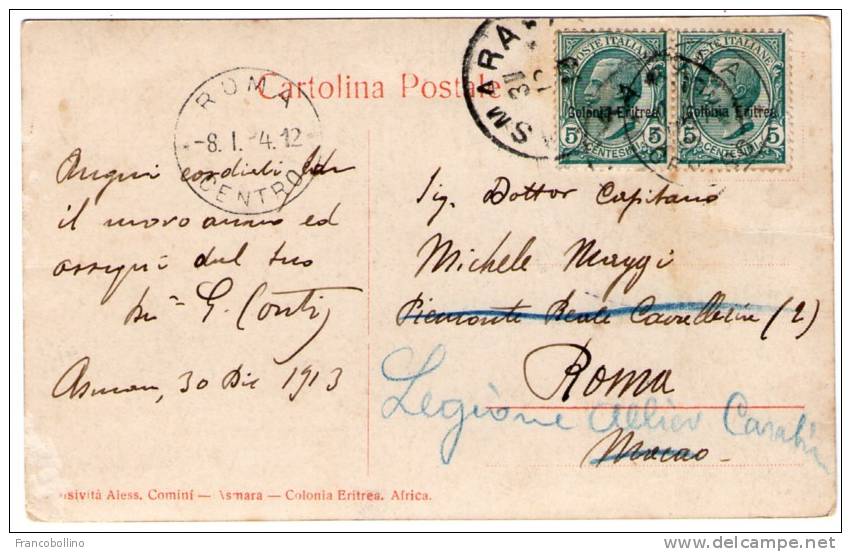 Cartolina Postale
ROMA
-8.1.-4.12
CENTRO
ASMARA
31
POSTE ITALIANE
POSTE ITALIANE
Colonia Eritrea
Colonia Eritrea
5 CENTESIMI 5
5 CENTESIMI 5
Auguri cordiali
il nuovo anno ed
ossequi dal tuo
G. Conti
Asmara, 30 Dic 1913
Sig. Dottor Capitano
Michele Maggi
Piemonte Reale Cavalleria (2)
Roma
Legione Allievi Carabin
Macao
usività Aless. Comini — Asmara — Colonia Eritrea. Africa.
Francobollino
delcampe.net